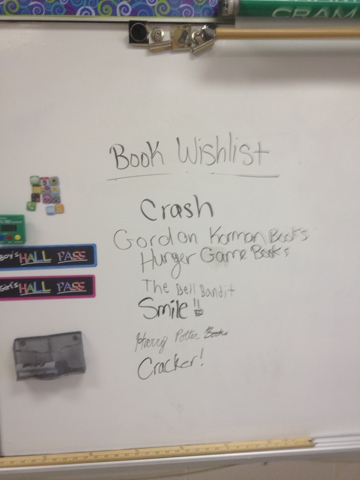 CRAM
Book Wishlist
Crash
Gordon Korman Books
Hunger Game Books
The Bell Bandit
Smile!!
Harry Potter Books
Cracker!
Boy's HALL PASS
Girl's HALL PASS